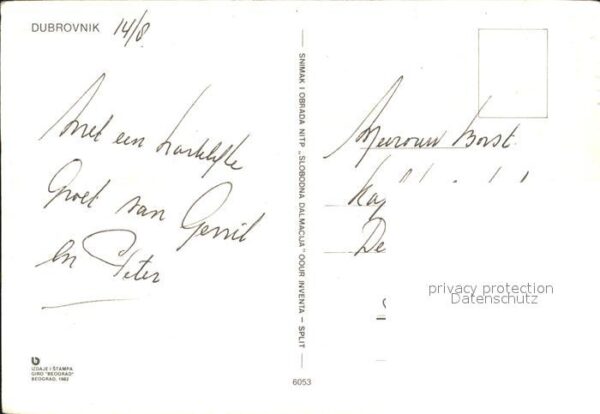 DUBROVNIK 14/8
Met een hartelijke
Groet van Gerrit
en Peter
IZDAJE I ŠTAMPA
GIRO "BEOGRAD"
BEOGRAD, 1982
SNIMAK I OBRADA NITP „SLOBODNA DALMACIJA" OOUR INVENTA – SPLIT
6053
Mevrouw Borst
Ka
De
privacy protection
Datenschutz